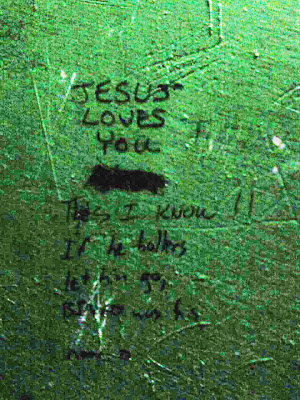 JESUS
LOVES
YOU
This I KNOW !!
If he hollers
let him go,
was his